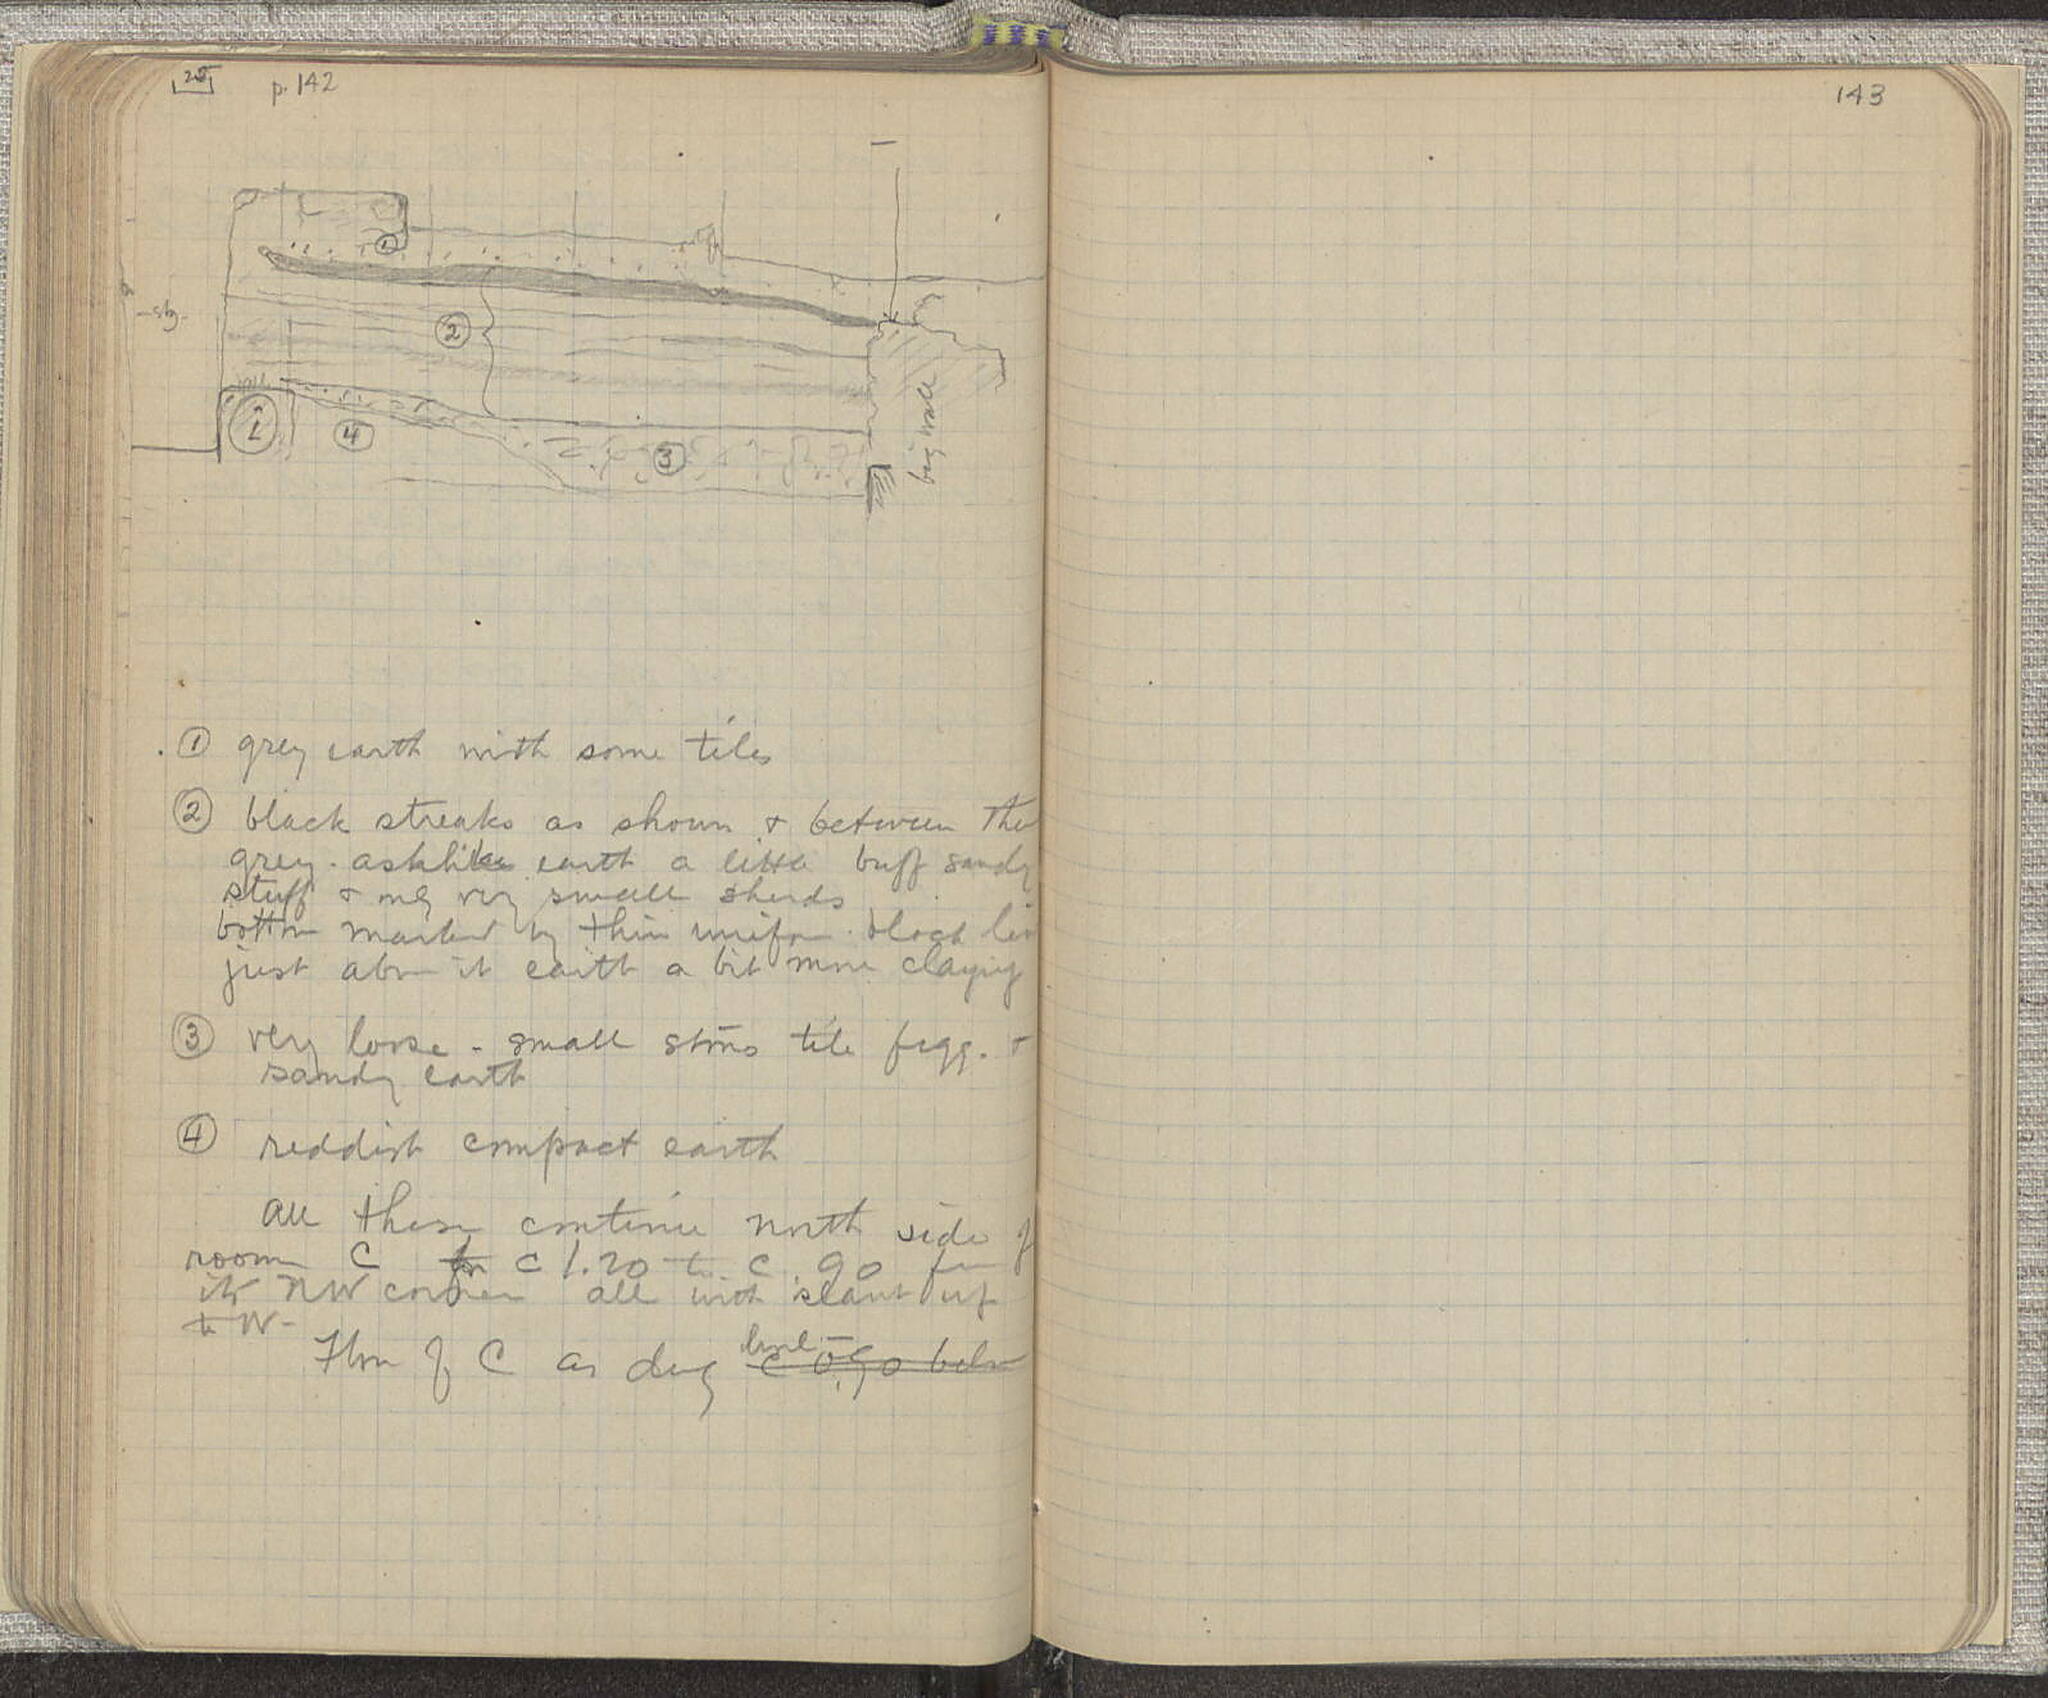 25 p. 142
143
①
②
④
③
big wall
① grey earth with some tiles
② black streaks as shown & between the
grey ashlike earth a little buff sandy
stuff & only very small sherds
bottom marked by thin uniform black
just above it earth a bit more clayey
③ very loose - small stones tile fragg. &
sandy earth
④ reddish compact earth
All these continue north side of
room C c 1.20 to c .90 from
its NW corner all with slant up
to W-
Floor of C as dug level
c 0.90 below